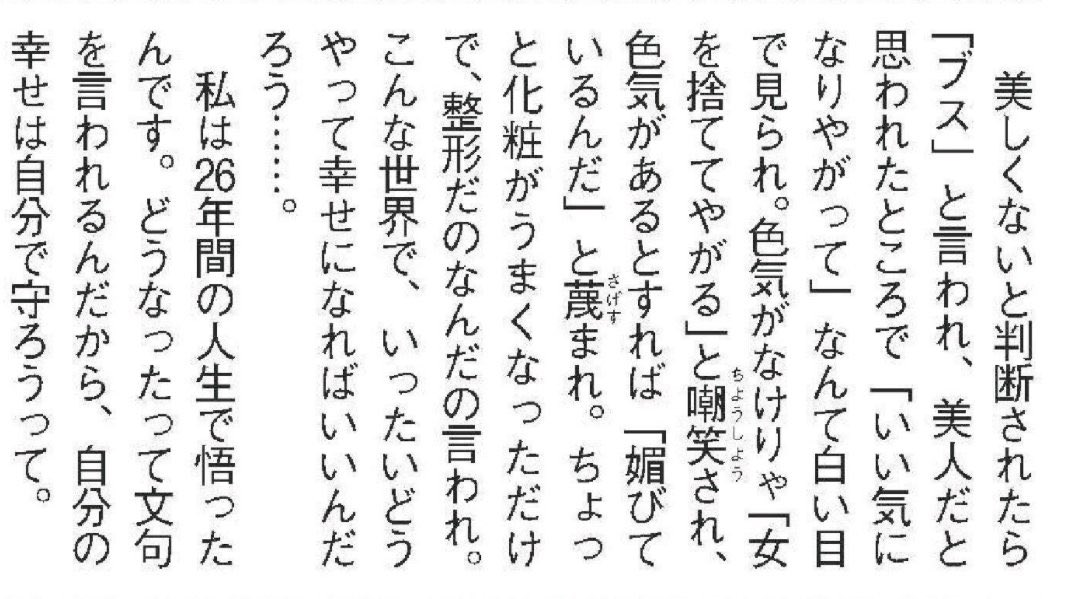 美しくないと判断されたら
「ブス」と言われ、美人だと
思われたところで「いい気に
なりやがって」なんて白い目
で見られ。色気がなけりゃ「女
を捨ててやがる」と嘲笑され、
ちょうしょう
色気があるとすれば「媚びて
いるんだ」と蔑まれ。ちょっ
さげす
と化粧がうまくなっただけ
で、整形だのなんだの言われ。
こんな世界で、いったいどう
やって幸せになればいいんだ
ろう……。
私は26年間の人生で悟った
んです。どうなったって文句
を言われるんだから、自分の
幸せは自分で守ろうって。